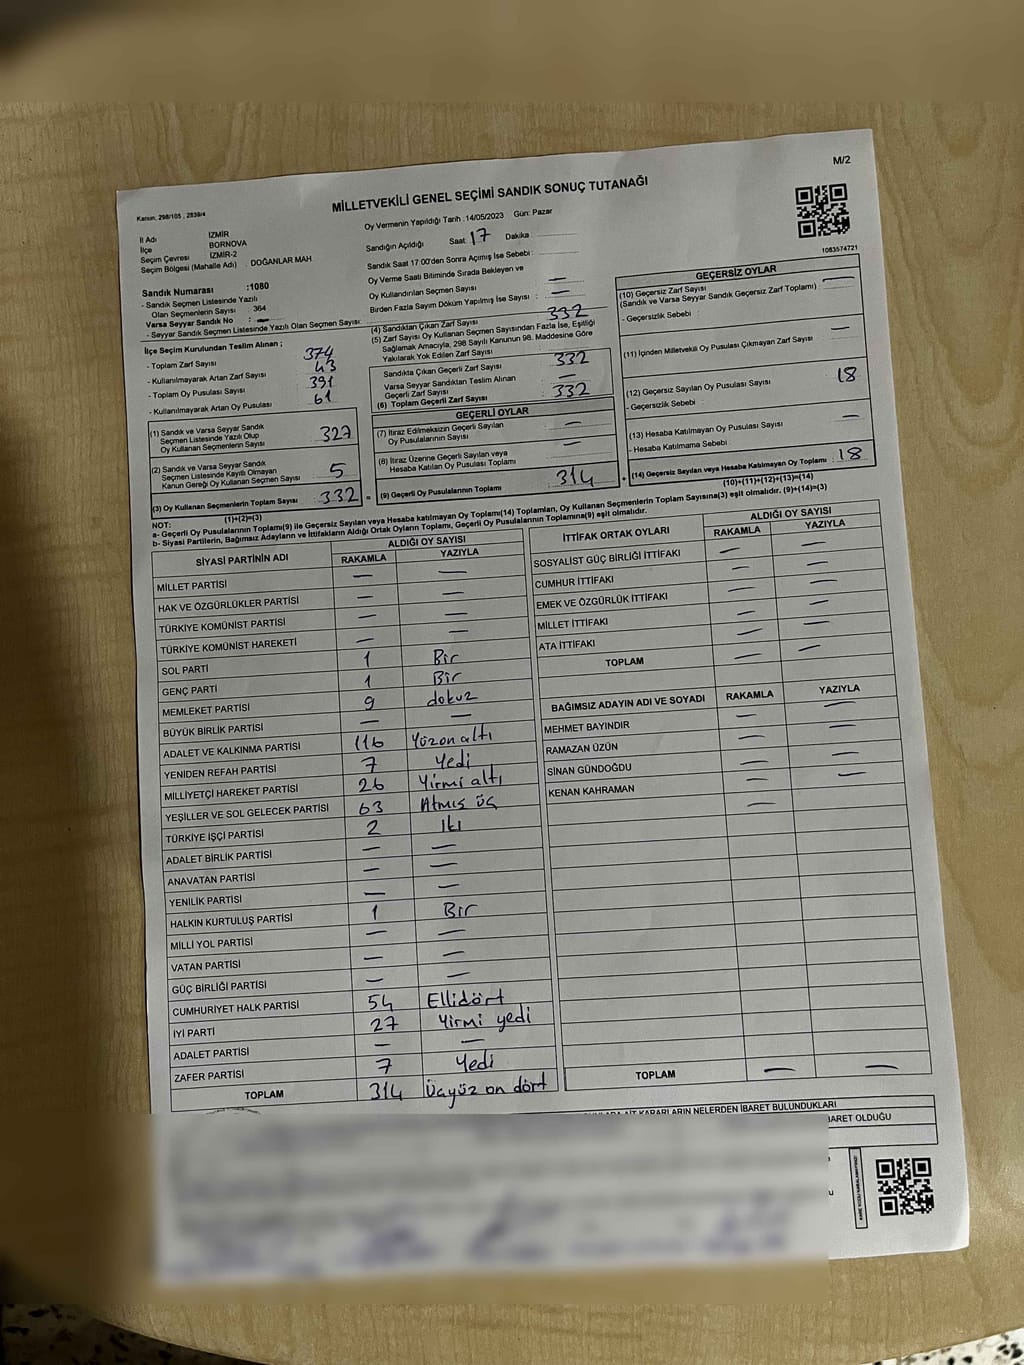 M/2
MİLLETVEKİLİ GENEL SEÇİMİ SANDIK SONUÇ TUTANAĞI
Kanun: 298/105 , 2839/4
Oy Vermenin Yapıldığı Tarih :14/05/2023 Gün: Pazar
İl Adı İZMİR
İlçe BORNOVA
Seçim Çevresi İZMİR-2
Seçim Bölgesi (Mahalle Adı) : DOĞANLAR MAH
Sandık Numarası :1080
- Sandık Seçmen Listesinde Yazılı
Olan Seçmenlerin Sayısı 364
Varsa Seyyar Sandık No : —
- Seyyar Sandık Seçmen Listesinde Yazılı Olan Seçmen Sayısı:
Sandığın Açıldığı Saat 17 Dakika
Sandık Saat 17:00'den Sonra Açımış İse Sebebi :
Oy Verme Saati Bitiminde Sırada Bekleyen ve
Oy Kullandırılan Seçmen Sayısı : —
Birden Fazla Sayım Döküm Yapılmış İse Sayısı : —
1083574721
İlçe Seçim Kurulundan Teslim Alınan ;
- Toplam Zarf Sayısı 374
- Kullanılmayarak Artan Zarf Sayısı 43
- Toplam Oy Pusulası Sayısı 391
- Kullanılmayarak Artan Oy Pusulası 61
(1) Sandık ve Varsa Seyyar Sandık
Seçmen Listesinde Yazılı Olup
Oy Kullanan Seçmenlerin Sayısı 327
(2) Sandık ve Varsa Seyyar Sandık
Seçmen Listesinde Kayıtlı Olmayan
Kanun Gereği Oy Kullanan Seçmen Sayısı 5
(3) Oy Kullanan Seçmenlerin Toplam Sayısı 332 =
(1)+(2)=(3)
(4) Sandıktan Çıkan Zarf Sayısı 332
(5) Zarf Sayısı Oy Kullanan Seçmen Sayısından Fazla İse, Eşitliği
Sağlamak Amacıyla, 298 Sayılı Kanunun 98. Maddesine Göre
Yakılarak Yok Edilen Zarf Sayısı
Sandıkta Çıkan Geçerli Zarf Sayısı 332
Varsa Seyyar Sandıktan Teslim Alınan
Geçerli Zarf Sayısı —
(6) Toplam Geçerli Zarf Sayısı 332
GEÇERLİ OYLAR
(7) İtiraz Edilmeksizin Geçerli Sayılan
Oy Pusulalarının Sayısı —
(8) İtiraz Üzerine Geçerli Sayılan veya
Hesaba Katılan Oy Pusulası Toplamı —
(9) Geçerli Oy Pusulalarının Toplamı 314 +
GEÇERSİZ OYLAR
(10) Geçersiz Zarf Sayısı
(Sandık ve Varsa Seyyar Sandık Geçersiz Zarf Toplamı) —
- Geçersizlik Sebebi :
(11) İçinden Milletvekili Oy Pusulası Çıkmayan Zarf Sayısı —
(12) Geçersiz Sayılan Oy Pusulası Sayısı 18
- Geçersizlik Sebebi :
(13) Hesaba Katılmayan Oy Pusulası Sayısı —
- Hesaba Katılmama Sebebi :
(14) Geçersiz Sayılan veya Hesaba Katılmayan Oy Toplamı : 18
(10)+(11)+(12)+(13)=(14)
NOT:
a- Geçerli Oy Pusulalarının Toplamı(9) ile Geçersiz Sayılan veya Hesaba katılmayan Oy Toplamı(14) Toplamları, Oy Kullanan Seçmenlerin Toplam Sayısına(3) eşit olmalıdır. (9)+(14)=(3)
b- Siyasi Partilerin, Bağımsız Adayların ve İttifakların Aldığı Ortak Oyların Toplamı, Geçerli Oy Pusulalarının Toplamına(9) eşit olmalıdır.
SİYASİ PARTİNİN ADI ALDIĞI OY SAYISI
RAKAMLA YAZIYLA
MİLLET PARTİSİ — —
HAK VE ÖZGÜRLÜKLER PARTİSİ — —
TÜRKİYE KOMÜNİST PARTİSİ — —
TÜRKİYE KOMÜNİST HAREKETİ — —
SOL PARTİ 1 Bir
GENÇ PARTİ 1 Bir
MEMLEKET PARTİSİ 9 dokuz
BÜYÜK BİRLİK PARTİSİ — —
ADALET VE KALKINMA PARTİSİ 116 Yüzon altı
YENİDEN REFAH PARTİSİ 7 Yedi
MİLLİYETÇİ HAREKET PARTİSİ 26 Yirmi altı
YEŞİLLER VE SOL GELECEK PARTİSİ 63 Atmış üç
TÜRKİYE İŞÇİ PARTİSİ 2 İki
ADALET BİRLİK PARTİSİ — —
ANAVATAN PARTİSİ — —
YENİLİK PARTİSİ — —
HALKIN KURTULUŞ PARTİSİ 1 Bir
MİLLİ YOL PARTİSİ — —
VATAN PARTİSİ — —
GÜÇ BİRLİĞİ PARTİSİ — —
CUMHURİYET HALK PARTİSİ 54 Ellidört
İYİ PARTİ 27 Yirmi yedi
ADALET PARTİSİ — —
ZAFER PARTİSİ 7 Yedi
TOPLAM 314 Üçyüz on dört
İTTİFAK ORTAK OYLARI ALDIĞI OY SAYISI
RAKAMLA YAZIYLA
SOSYALİST GÜÇ BİRLİĞİ İTTİFAKI — —
CUMHUR İTTİFAKI — —
EMEK VE ÖZGÜRLÜK İTTİFAKI — —
MİLLET İTTİFAKI — —
ATA İTTİFAKI — —
TOPLAM — —
BAĞIMSIZ ADAYIN ADI VE SOYADI RAKAMLA YAZIYLA
MEHMET BAYINDIR — —
RAMAZAN ÜZÜN — —
SİNAN GÜNDOĞDU — —
KENAN KAHRAMAN — —
TOPLAM — —
KARARLARIN NELERDEN İBARET BULUNDUKLARI
OLDUĞU